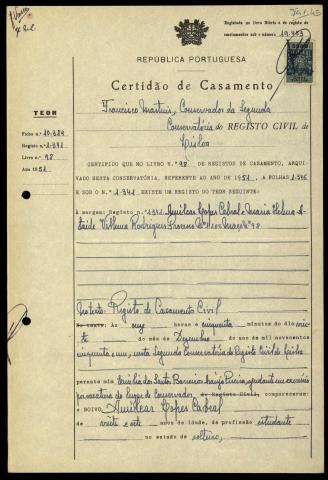 Registada no livro Diário e do registo de
emolumentos sob o número 19.453
REPÚBLICA PORTUGUESA
Certidão de Casamento
Conservador da Segunda
Conservatória do REGISTO CIVIL de
Lisboa
TEOR
Ficha n.º 10.389
Registo n.º 1.341
Livro n.º 98
Ano 1951
CERTIFICO QUE NO LIVRO N.º 98 DE REGISTOS DE CASAMENTO, ARQUIVADO NESTA CONSERVATÓRIA, REFERENTE AO ANO DE 1951, A FOLHAS
E SOB O N.º 1.341 EXISTE UM REGISTO DO TEOR SEGUINTE:
À margem: Registo n.º 1341 Amilcar Lopes Cabral e Maria Helena Ataíde Vilhena Rodrigues
No texto: Registo de Casamento Civil
No texto: Às nove horas e cinquenta minutos do dia vinte
do mês de Dezembro do ano de mil novecentos
cinquenta e um, nesta Segunda Conservatória do Registo Civil de Lisboa
perante mim
do lugar de Conservador do Registo Civil, compareceram:
o NOIVO Amilcar Lopes Cabral
de vinte e sete anos de idade, de profissão estudante
no estado de solteiro,